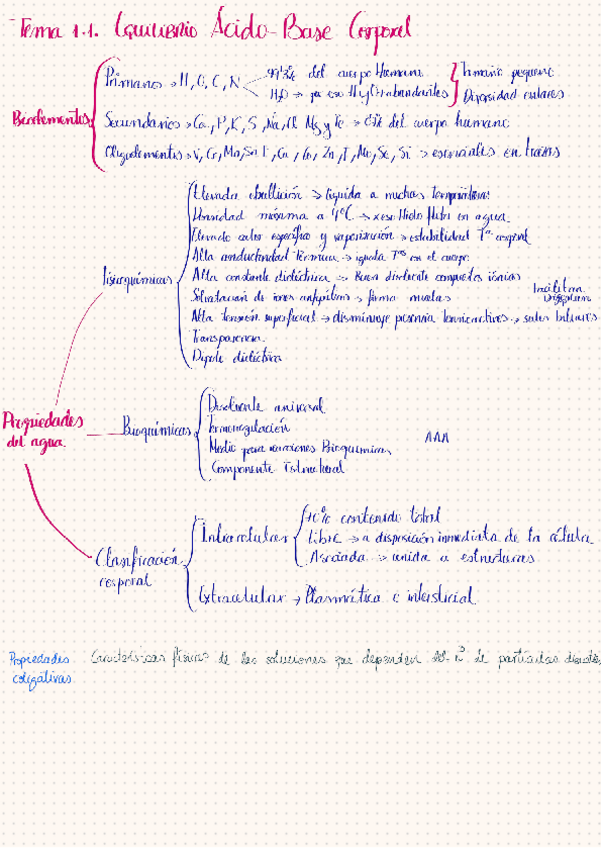 Tema 1.1. Equilibrio Ácido-Base Corporal
Bioelementos
Primarios → H, O, C, N
99'3% del cuerpo Humano
H₂O → por eso H y O + abundantes
Tamaño pequeño
Diversidad enlaces
Secundarios → Ca, P, K, S, Na, Cl, Mg y Fe → del cuerpo humano
Oligoelementos → Cr, Mn, Zn, I, Mo, Se, Si → esenciales en trazas
Propiedades del agua.
Fisicoquímicas
Elevada ebullición → líquida a muchas temperaturas
Densidad máxima a 4ºC → x eso Hielo flota en agua
Elevado calor específico y vaporización → estabilidad Tª corporal
Alta conductividad térmica → iguala Tªs en el cuerpo
Alta constante dieléctrica → Buen disolvente compuestos iónicos
Solvatación de iones anfipáticos → forma micelas
Alta tensión superficial → disminuye presencia tensioactivos → sales biliares
facilitan
Digestión
Transparencia.
Dipolo dieléctrico
Bioquímicas
Disolvente universal
Termorregulación
Medio para reacciones
Componente Estructural
Clasificación corporal
Intracelular
70% contenido total
Libre → a disposición inmediata de la célula
Asociada → unida a estructuras
Extracelular → Plasmática e intersticial
Propiedades coligativas
Características físicas de las soluciones que dependen del nº de partículas